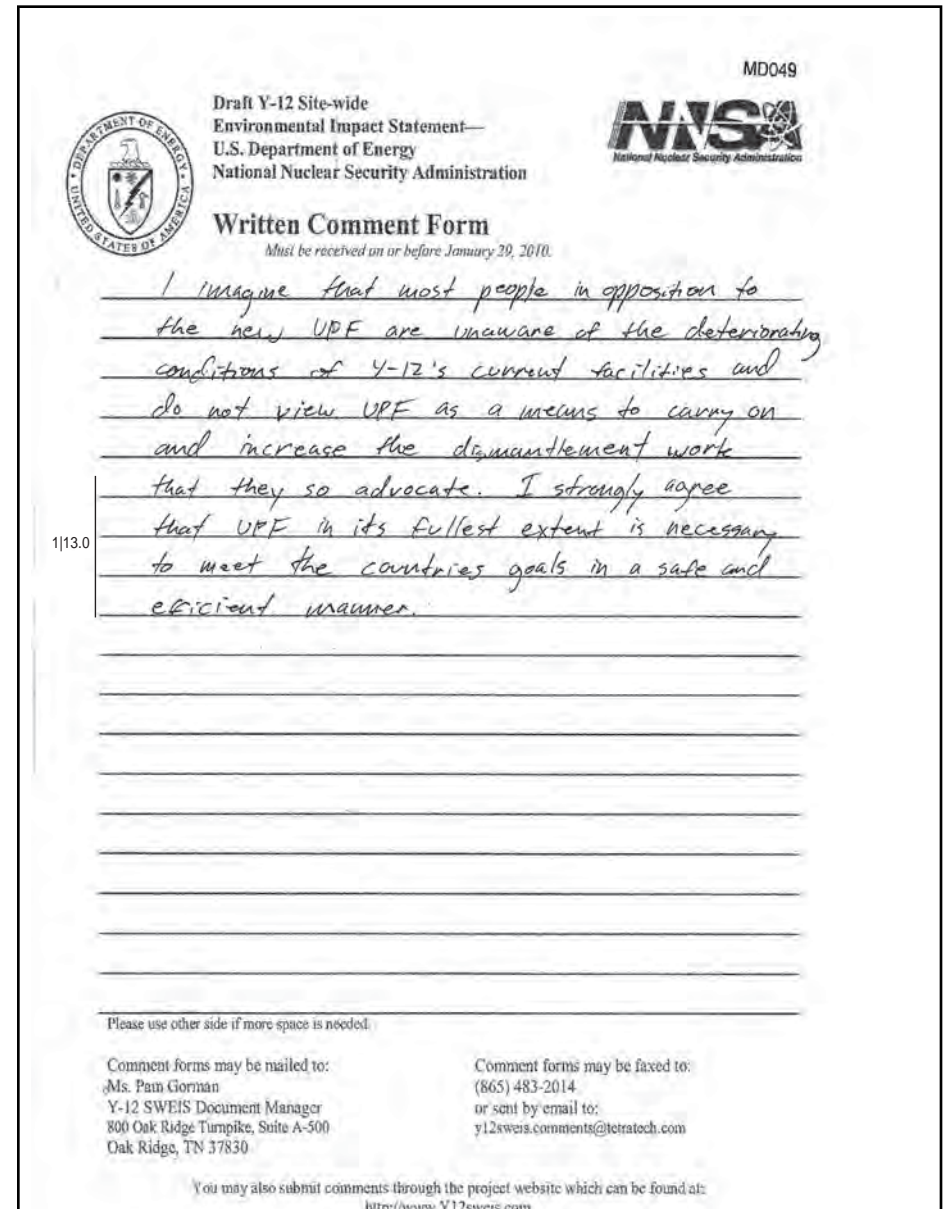 MD049
Draft Y-12 Site-wide
Environmental Impact Statement—
U.S. Department of Energy
National Nuclear Security Administration
DEPARTMENT OF ENERGY
UNITED STATES OF AMERICA
NNSA
National Nuclear Security Administration
Written Comment Form
Must be received on or before January 29, 2010.
I imagine that most people in opposition to
the new UPF are unaware of the deteriorating
conditions of Y-12's current facilities and
do not view UPF as a means to carry on
and increase the dismantlement work
that they so advocate. I strongly agree
that UPF in its fullest extent is necessary
1|13.0
to meet the countries goals in a safe and
efficient manner.
Please use other side if more space is needed.
Comment forms may be mailed to:
Ms. Pam Gorman
Y-12 SWEIS Document Manager
800 Oak Ridge Turnpike, Suite A-500
Oak Ridge, TN 37830
Comment forms may be faxed to:
(865) 483-2014
or sent by email to:
y12sweis.comments@tetratech.com
You may also submit comments through the project website which can be found at:
http://www.Y12sweis.com